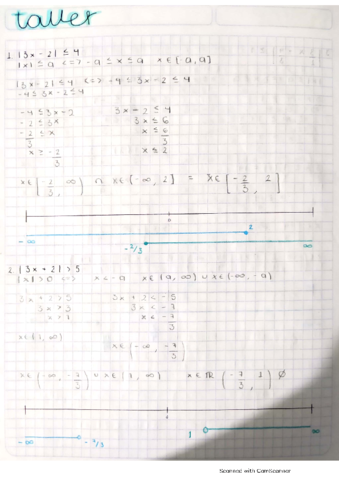 taller
1. |3x - 2| ≤ 4
|x| ≤ a <=> -a ≤ x ≤ a   x ∈ [-a, a]
|3x - 2| ≤ 4 <=> -4 ≤ 3x - 2 ≤ 4
-4 ≤ 3x - 2 ≤ 4
-4 ≤ 3x - 2   3x - 2 ≤ 4
-2 ≤ 3x   3x ≤ 6
-2/3 ≤ x   x ≤ 6/3
x ≥ -2/3   x ≤ 2
x ∈ [-2/3, ∞) ∩ x ∈ (-∞, 2] = x ∈ [-2/3, 2]
0
-∞   2
-2/3   ∞
2. |3x + 2| > 5
x < -a   x ∈ (a, ∞) ∪ x ∈ (-∞, -a)
3x + 2 > 5   3x + 2 < -5
3x > 3   3x < -7
x > 1   x < -7/3
x ∈ (1, ∞)
x ∈ (-∞, -7/3)
x ∈ (-∞, -7/3) ∪ x ∈ (1, ∞)   x ∈ ℝ (-7/3, 1) ∅
-∞   1   ∞
Scanned with CamScanner